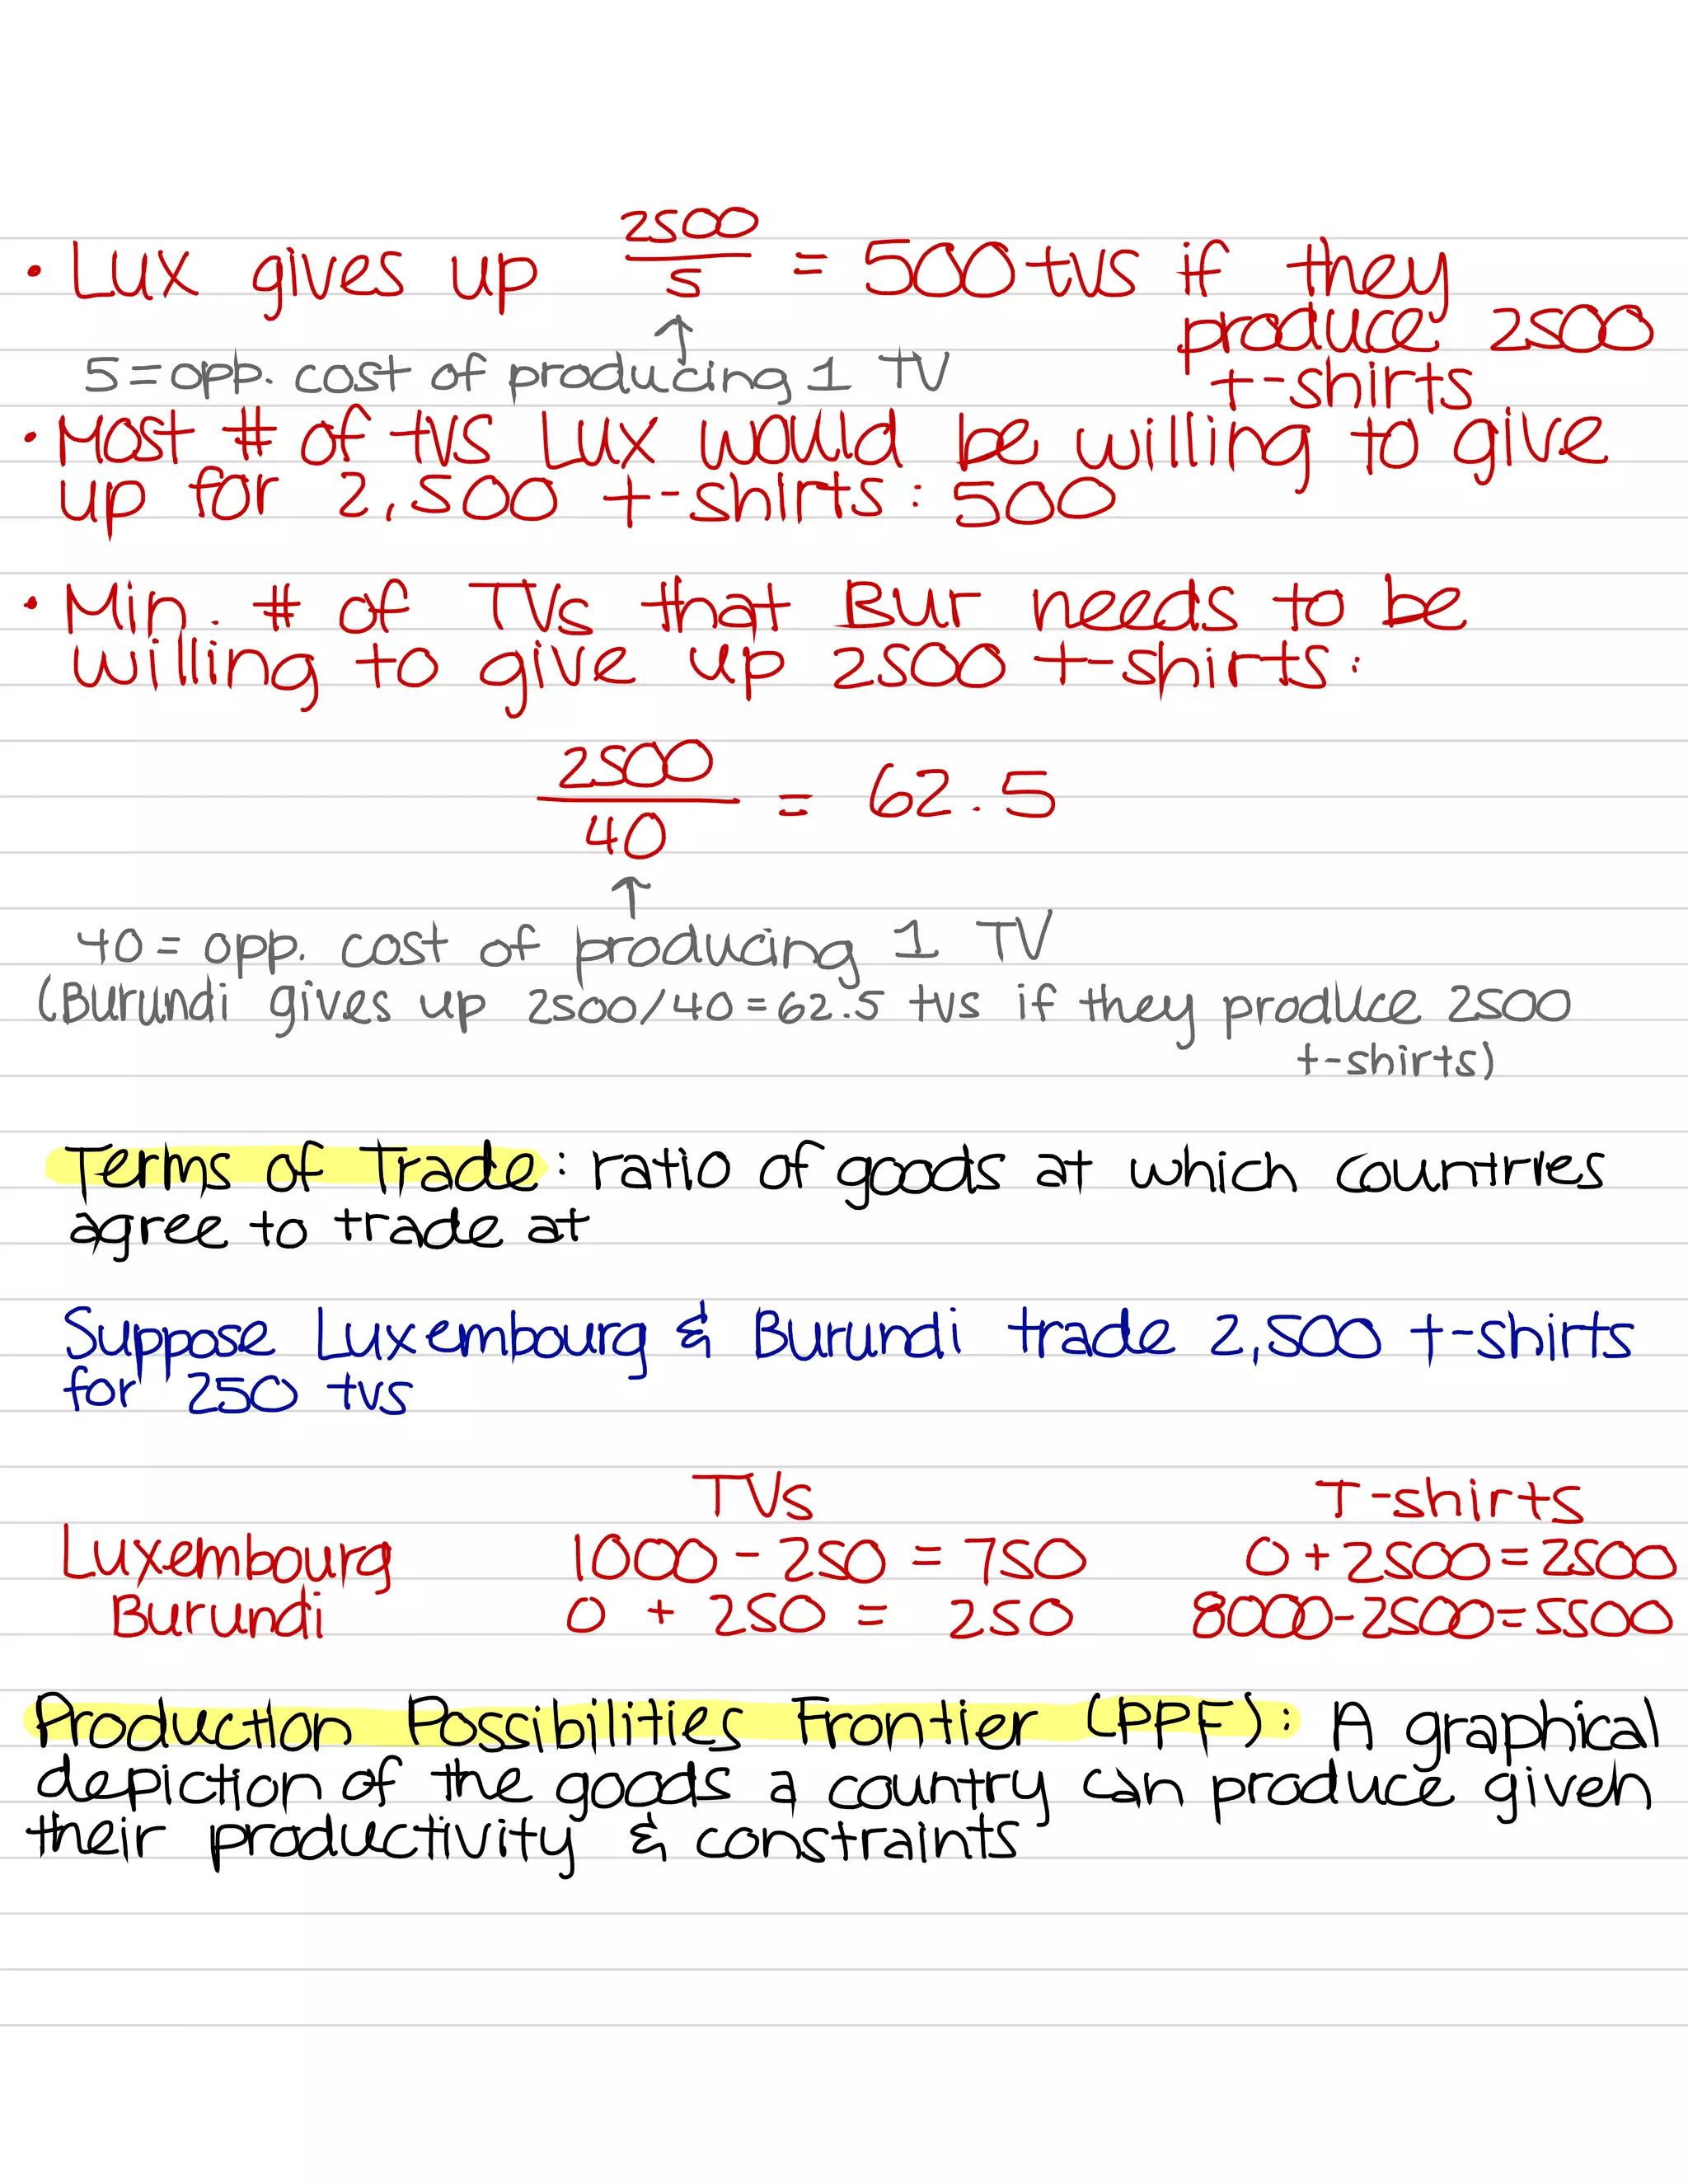 • Lux gives up 2500/5 = 500 tvs if they
produce 2500
t-shirts
↑
5 = opp. cost of producing 1 TV
• Most # of tvs Lux would be willing to give
up for 2,500 t-shirts: 500
• Min. # of TVs that Bur needs to be
willing to give up 2500 t-shirts:
2500/40 = 62.5
↑
40 = opp. cost of producing 1 TV
(Burundi gives up 2500/40 = 62.5 tvs if they produce 2500
t-shirts)
Terms of Trade: ratio of goods at which countries
agree to trade at
Suppose Luxembourg & Burundi trade 2,500 t-shirts
for 250 tvs
TVs T-shirts
Luxembourg 1000 - 250 = 750 0 + 2500 = 2500
Burundi 0 + 250 = 250 8000 - 2500 = 5500
Production Possibilities Frontier (PPF): A graphical
depiction of the goods a country can produce given
their productivity & constraints